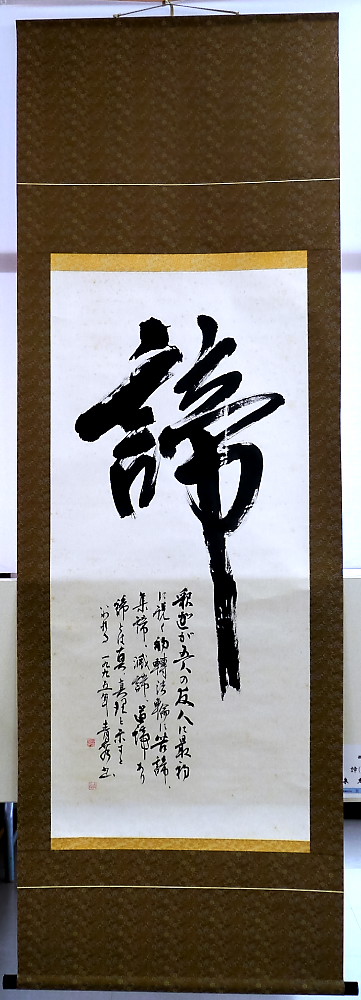 諦
釈迦が五人の友人に最初
に説く初轉法輪に苦諦、
集諦、滅諦、道諦あり
諦とは真、真理を示すと
いわれる 一九九五年